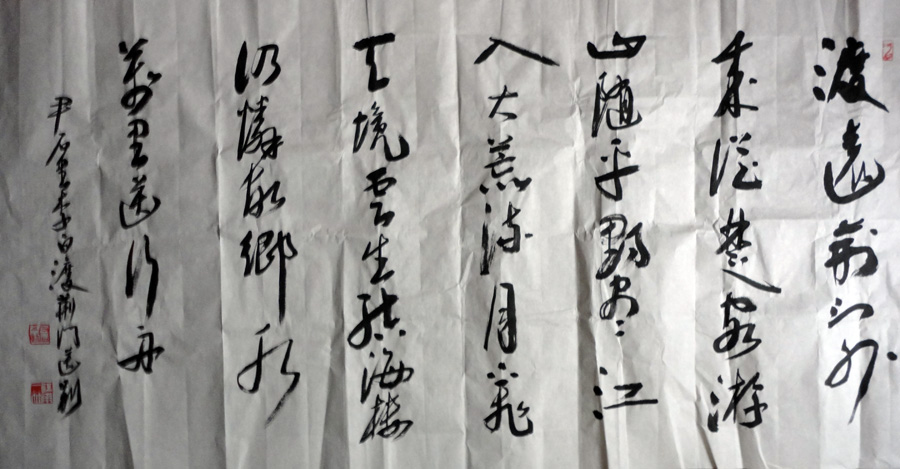 渡遠荊門外
來從楚客游
山隨平野盡江
入大荒流月下飛
天境雲生結海樓
仍憐故鄉水
萬里送行舟
尹石書李白渡荊門送別